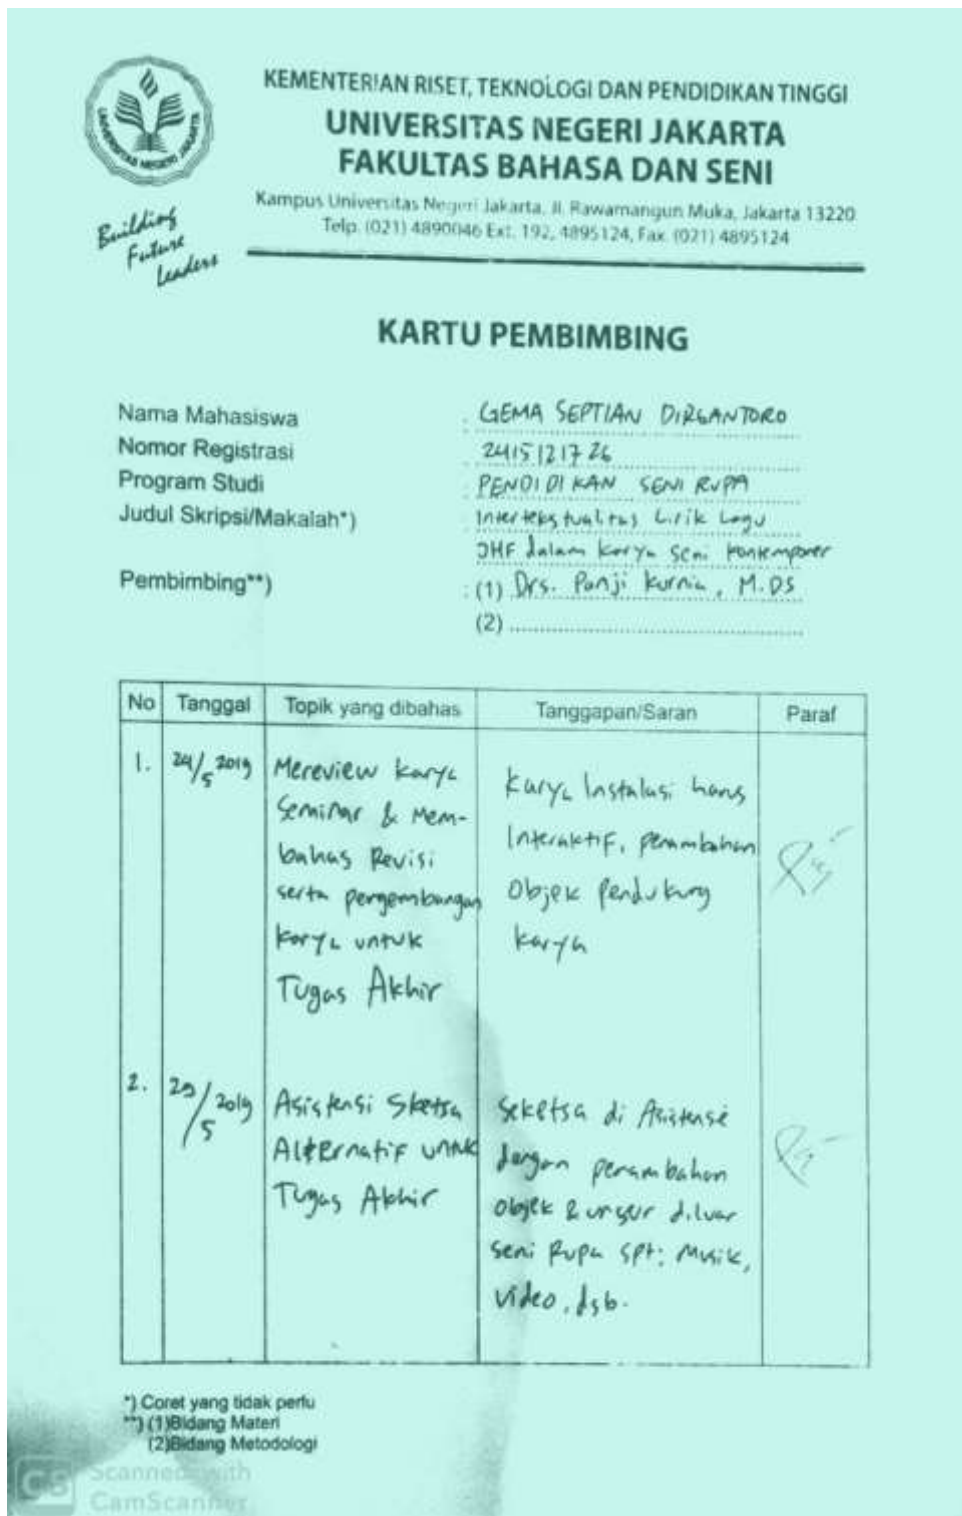 KEMENTERIAN RISET, TEKNOLOGI DAN PENDIDIKAN TINGGI
UNIVERSITAS NEGERI JAKARTA
FAKULTAS BAHASA DAN SENI
Kampus Universitas Negeri Jakarta, Jl. Rawamangun Muka, Jakarta 13220
Telp. (021) 4890046 Ext. 192, 4895124, Fax. (021) 4895124
UNIVERSITAS NEGERI JAKARTA
Building
Future
Leaders
KARTU PEMBIMBING
Nama Mahasiswa : GEMA SEPTIAN DIRGANTORO
Nomor Registrasi : 2415121726
Program Studi : PENDIDIKAN SENI RUPA
Judul Skripsi/Makalah*) : Intertekstualitas Lirik Lagu
DHF dalam karya seni kontemporer
Pembimbing**) : (1) Drs. Panji Kurnia, M.DS
(2)
No Tanggal Topik yang dibahas Tanggapan/Saran Paraf
1. 24/5 2019
Mereview karya
Seminar & Mem-
bahas Revisi
serta pengembangan
karya untuk
Tugas Akhir
Karya Instalasi harus
Interaktif, penambahan
Objek Pendukung
karya
2. 29/5 2019
Asistensi Sketsa
Alternatif untuk
Tugas Akhir
Seketsa di Asistensi
dengan penambahan
objek & unsur diluar
seni Rupa spt: Musik,
video, dsb.
*) Coret yang tidak perlu
**) (1)Bidang Materi
(2)Bidang Metodologi
CS Scanned with
CamScanner